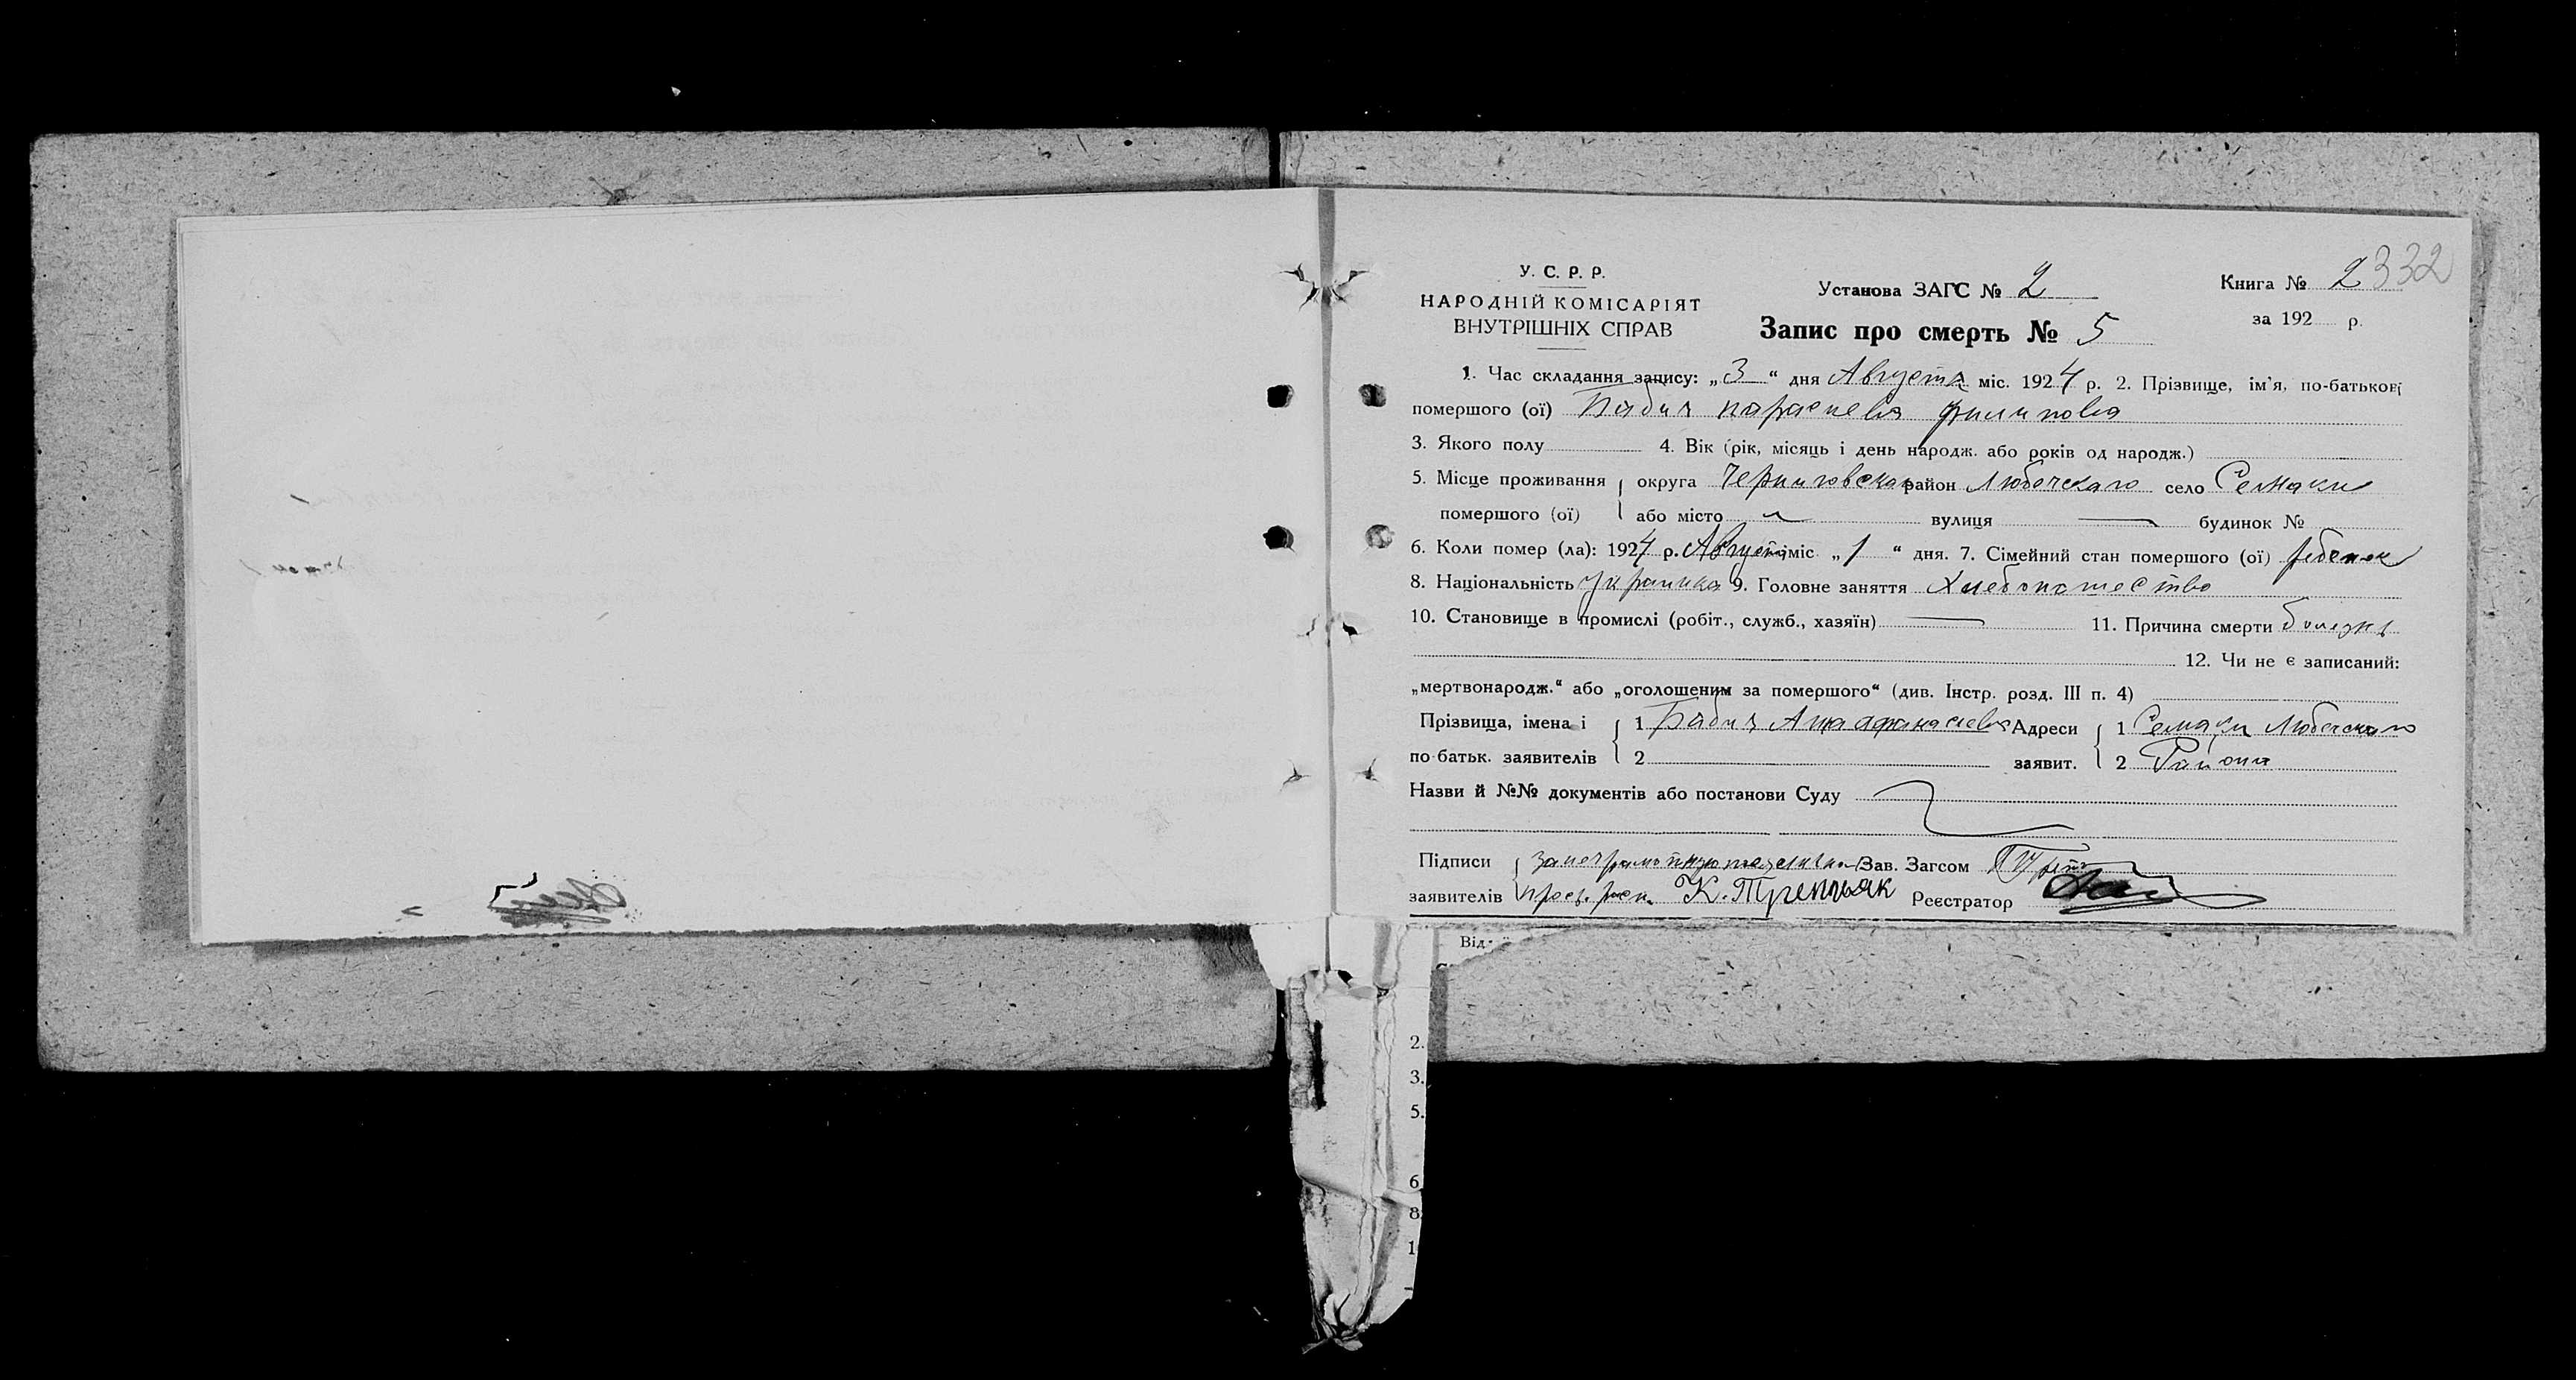 У. С. Р. Р.
НАРОДНІЙ КОМІСАРІЯТ
ВНУТРІШНІХ СПРАВ
Установа ЗАГС № 2
Запис про смерть № 5
Книга № 2 332
за 192 р.
1. Час складання запису: „3“ дня Августа міс. 1924 р. 2. Прізвище, ім'я, по-батькові
померш­ого (ої) Бабич Параскева Филипова
3. Якого полу 4. Вік (рік, місяць і день народж. або років од народж.)
5. Місце проживання округа Черниговская район Любечскаго село Семаки
помершого (ої) або місто вулиця будинок №
6. Коли помер (ла): 1924 р. Августа міс. „1“ дня. 7. Сімейний стан помершого (ої) ребенок
8. Національність Украинка 9. Головне заняття Хлебопашество
10. Становище в промислі (робіт., служб., хазяїн) 11. Причина смерти болезнь
12. Чи не є записаний:
„мертвонародж.“ або „оголошеним за помершого“ (див. Інстр. розд. III п. 4)
Прізвища, імена і 1 Бабич Афанасиева Адреси 1 Семаки Любечскаго
по-батьк. заявителів 2 заявит. 2 Района
Назви й №№ документів або постанови Суду
Підписи за неграмотную Зав. Загсом
заявителів К. Третьяк Реєстратор
Від
2.
3.
5.
6
8
1